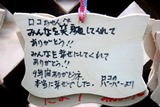 ロコちゃんへ
みんなを笑顔にしてくれて
ありがとう!!
みんなを幸せにしてくれて
ありがとう!!
9年間ありがとうネ
本当に幸せでした。
ロコの
パーパーより